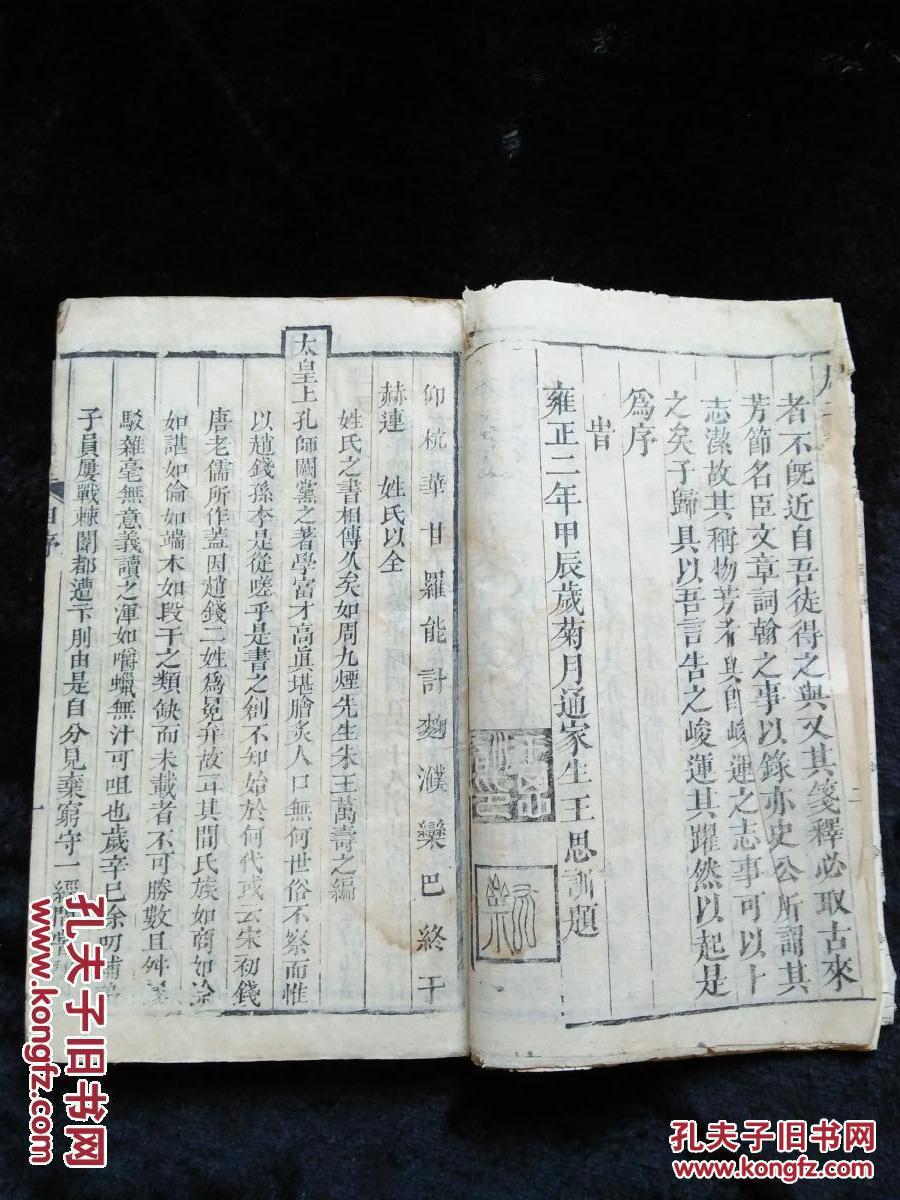 者不旣近自吾徒得之與又其箋釋必取古來
芳節名臣文章詞翰之事以錄亦史公所謂其
志潔故其稱物芳者與卽峻運之志事可以上
之矣子歸具以吾言告之峻運其躍然以起是
爲序
旹
雍正二年甲辰歲菊月通家生王思訓題
仰杭華甘羅能計麹濮欒巴終干
赫連 姓氏以全
姓氏之書相傳久矣如周九煙先生朱王萬壽之編
太皇上孔師闕黨之著學富才高眞堪膾炙人口無何世俗不察而惟
以趙錢孫李是從嗟乎是書之創不知始於何代或云宋初錢
唐老儒所作蓋因趙錢二姓爲冕弁故耳其間氏族如商如涂
如諶如倫如端木如段干之類缺而未載者不可勝數且舛
駁雜毫無意義讀之渾如嚼蠟無汁可咀也歲辛巳余叨補
子員屢戰棘闈都遭卞刖由是自分見棄窮守一經
自序
一
二
孔夫子旧书网
孔夫子旧书网
www.kongfz.com